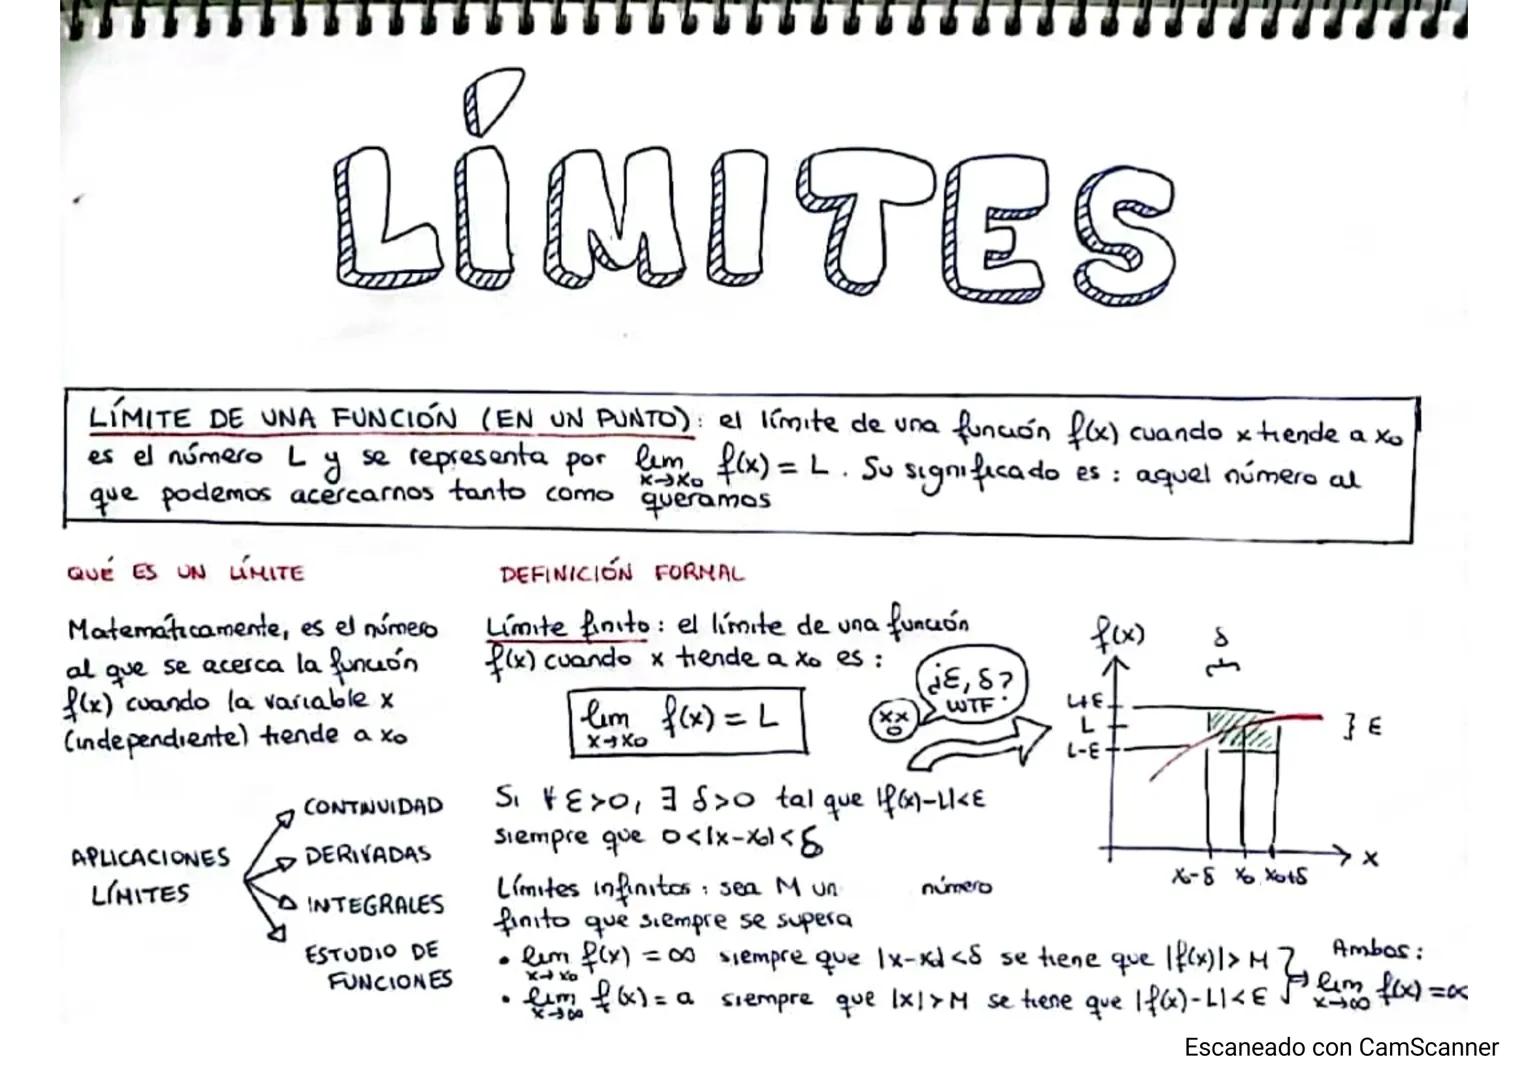 LÍMITES
LÍMITE DE UNA FUNCIÓN (EN UN PUNTO): el límite de una función f(x) cuando x tiende a x₀
es el número L y se representa por lim x→x₀ f(x) = L. Su significado es: aquel número al
que podemos acercarnos tanto como queramos
QUÉ ES UN LÍMITE
Matemáticamente, es el número
al que se acerca la función
f(x) cuando la variable x
(independiente) tiende a x₀
APLICACIONES
LÍMITES
CONTINUIDAD
DERIVADAS
INTEGRALES
ESTUDIO DE
FUNCIONES
DEFINICIÓN FORMAL
Límite finito: el límite de una función
f(x) cuando x tiende a x₀ es:
lim x→x₀ f(x) = L
¿ε, δ?
WTF
xx
o
Si ∀ε>0, ∃ δ>0 tal que |f(x)-L|<ε
siempre que 0<|x-x₀|<δ
Límites infinitos: sea M un número
finito que siempre se supera
• lim x→x₀ f(x) = ∞ siempre que |x-x₀|<δ se tiene que |f(x)|>M
• lim x→∞ f(x) = a siempre que |x|>M se tiene que |f(x)-L|<ε
Ambos:
lim x→∞ f(x) = ∞
f(x)
δ
L+ε
L
L-ε
} ε
x
x₀-δ x₀ x₀+δ
Escaneado con CamScanner